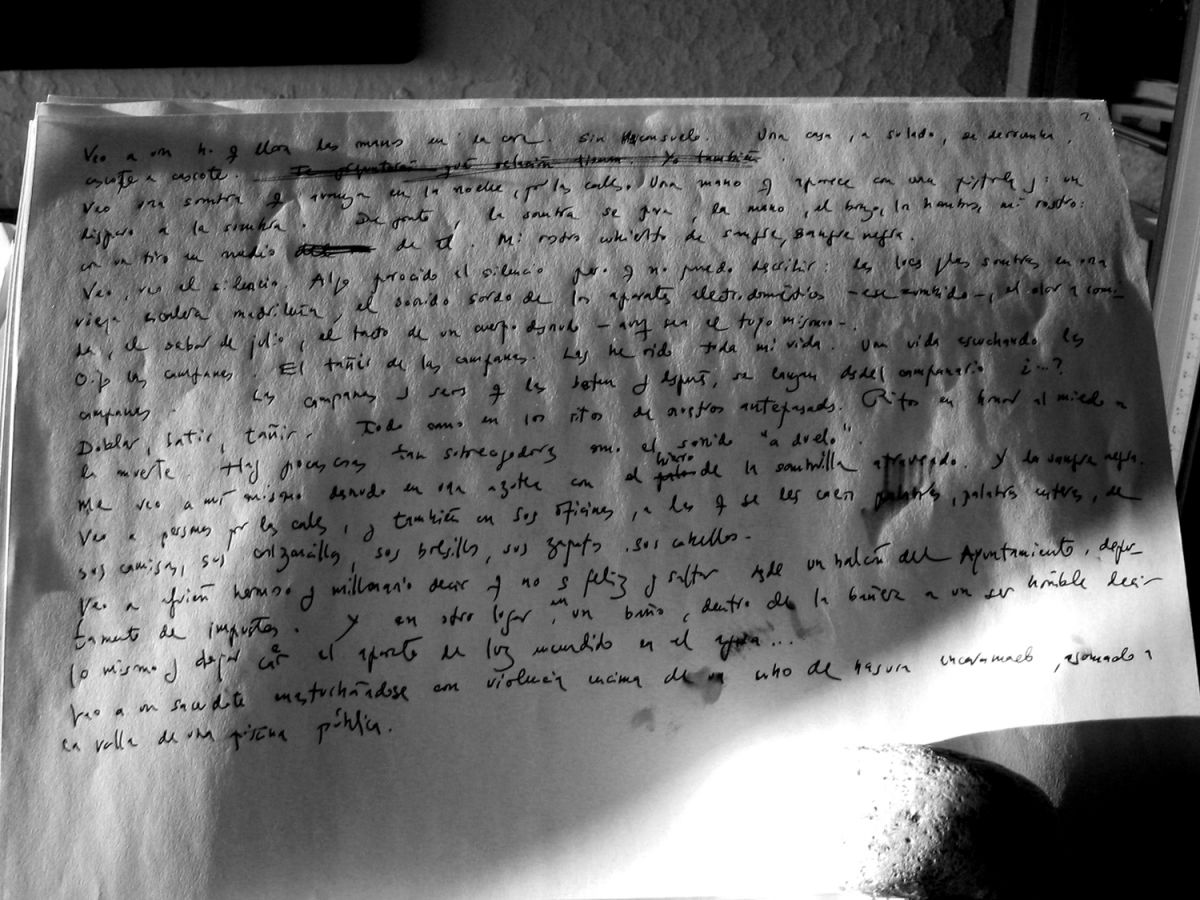 Veo a un h. q llora las manos en la cara. Sin consuelo. Una casa, a su lado, se derrumba
cascote a cascote. Te preguntarás qué relación tienen. Yo también
Veo una sombra q avanza en la noche, por las calles. Una mano q aparece con una pistola y: un
disparo a la sombra. De pronto, la sombra se gira, la mano, el brazo, los hombros, mi rostro:
con un tiro en medio de él. Mi rostro cubierto de sangre, sangre negra.
Veo, veo el silencio. Algo parecido al silencio pero q no puedo describir: las sombras en una
vieja escalera madrileña, el sonido sordo de los aparatos electrodomésticos -ese zumbido-, el olor a comi-
da, el sabor de julio, el tacto de un cuerpo desnudo - aunq sea el tuyo mismo-.
Oigo las campanas. El tañir de las campanas. Las he oido toda mi vida. Una vida escuchando las
campanas. Las campanas y seres q las baten y después, se lanzan desde el campanario ¿...?
Doblar, batir, tañir. Todo como en los ritos de nuestros antepasados. Ritos en honor al miedo a
la muerte. Hay pocas cosas tan sobrecogedoras como el sonido "a duelo".
Me veo a mí mismo desnudo en una azotea con el hierro de la sombrilla atravesado. Y la sangre negra.
Veo a personas por las calles, y también en sus oficinas, a las q se les caen palabras, palabras enteras, de
sus camisas, sus calzoncillos, sus bolsillos, sus zapatos, sus cabellos.
Veo a alguien hermoso y millonario decir q no es feliz y saltar desde un balcón del Ayuntamiento, depar-
tamento de impuestos. Y en otro lugar, en un baño, dentro de la bañera a un ser horrible decir
lo mismo y dejar caer el aparato de luz encendido en el agua...
Veo a un sacerdote masturbándose con violencia encima de un cubo de basura encaramado, asomado a
la valla de una piscina pública.